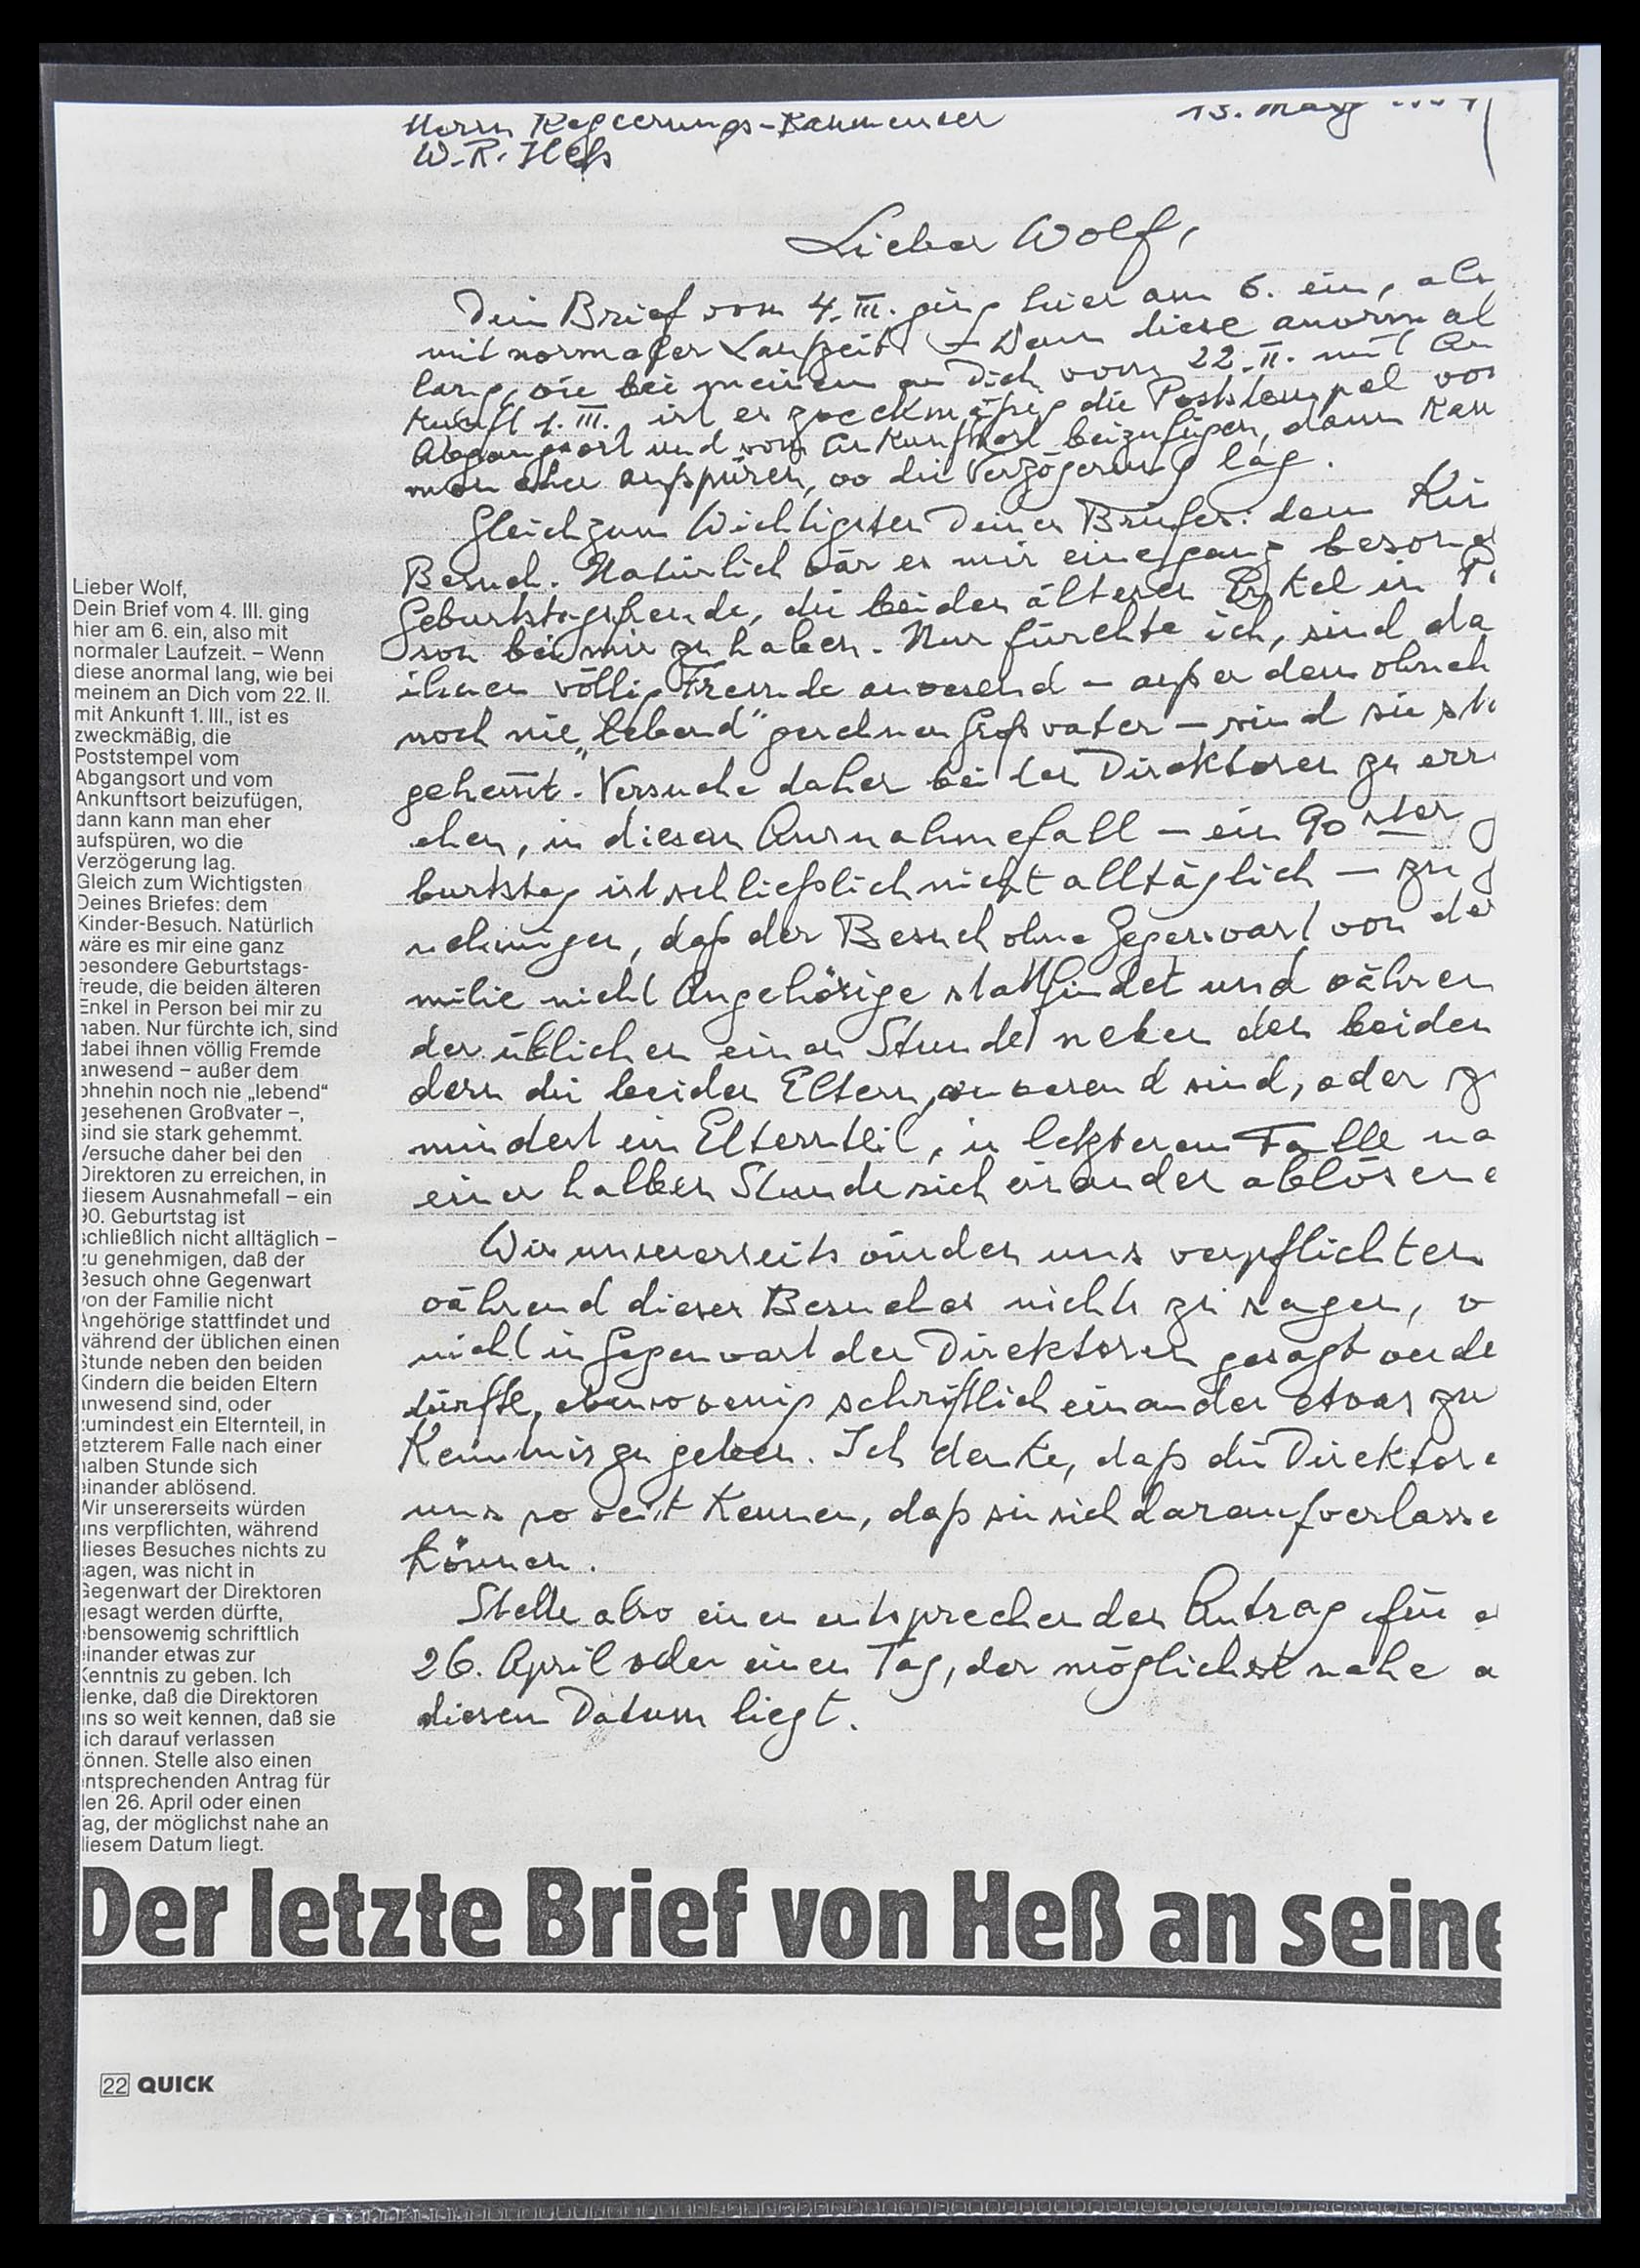 Herrn Regierungs-Baumeister
W.R. Heß
13. März
Lieber Wolf,
Dein Brief vom 4. III. ging hier am 6. ein, als
mit normaler Laufzeit. – Wenn diese anormal
lang, wie bei meinem an Dich vom 22. II. mit An
kunft 1. III., ist es zweckmäßig die Poststempel vom
Abgangsort und vom Ankunftsort beizufügen, dann kann
man eher aufspüren, wo die Verzögerung lag.
Gleich zum Wichtigsten Deines Briefes: dem Kin
Besuch. Natürlich wär es mir eine ganz besond
Geburtstagsfreude, die beiden älteren Enkel in P
son bei mir zu haben. Nur fürchte ich, sind da
ihnen völlig Fremde anwesend – außer dem ohneh
noch nie „lebend“ gesehnen Großvater – sind sie sta
gehemmt. Versuche daher bei den Direktoren zu errei
chen, in diesem Ausnahmefall – ein 90ster G
burtstag ist schließlich nicht alltäglich – zu g
nehmigen, daß der Besuch ohne Gegenwart von der
milie nicht Angehörige stattfindet und währen
der üblichen einen Stunde neben den beiden
dern die beiden Eltern anwesend sind, oder z
mindest ein Elternteil, in letzterem Falle na
einer halben Stunde sich einander ablösend
Wir unsererseits würden uns verpflichten
während dieses Besuches nichts zu sagen, w
nicht in Gegenwart der Direktoren gesagt werde
dürfte, ebensowenig schriftlich einander etwas zu
Kenntnis zu geben. Ich denke, daß die Direktore
uns so weit kennen, daß sie sich darauf verlasse
können.
Stelle also einen entsprechenden Antrag für d
26. April oder einen Tag, der möglichst nahe a
diesem Datum liegt.
Lieber Wolf,
Dein Brief vom 4. III. ging
hier am 6. ein, also mit
normaler Laufzeit. – Wenn
diese anormal lang, wie bei
meinem an Dich vom 22. II.
mit Ankunft 1. III., ist es
zweckmäßig, die
Poststempel vom
Abgangsort und vom
Ankunftsort beizufügen,
dann kann man eher
aufspüren, wo die
Verzögerung lag.
Gleich zum Wichtigsten
Deines Briefes: dem
Kinder-Besuch. Natürlich
wäre es mir eine ganz
besondere Geburtstags-
freude, die beiden älteren
Enkel in Person bei mir zu
haben. Nur fürchte ich, sind
dabei ihnen völlig Fremde
anwesend – außer dem
ohnehin noch nie „lebend“
gesehenen Großvater –,
sind sie stark gehemmt.
Versuche daher bei den
Direktoren zu erreichen, in
diesem Ausnahmefall – ein
90. Geburtstag ist
schließlich nicht alltäglich –
zu genehmigen, daß der
Besuch ohne Gegenwart
von der Familie nicht
Angehörige stattfindet und
während der üblichen einen
Stunde neben den beiden
Kindern die beiden Eltern
anwesend sind, oder
zumindest ein Elternteil, in
letzterem Falle nach einer
halben Stunde sich
einander ablösend.
Wir unsererseits würden
uns verpflichten, während
dieses Besuches nichts zu
sagen, was nicht in
Gegenwart der Direktoren
gesagt werden dürfte,
ebensowenig schriftlich
einander etwas zur
Kenntnis zu geben. Ich
denke, daß die Direktoren
uns so weit kennen, daß sie
sich darauf verlassen
können. Stelle also einen
entsprechenden Antrag für
den 26. April oder einen
Tag, der möglichst nahe an
diesem Datum liegt.
Der letzte Brief von Heß an seine
22 QUICK